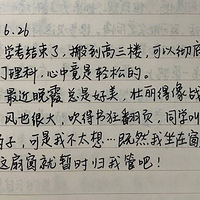 6.26
学考结束了，搬到高三楼，可以彻底
丁理科，心中竟是轻松的。
最近晚霞总是好美，壮丽得像战
风也很大，吹得书狂翻页，同学叫
子，可是我不太想…既然我坐在窗
这扇窗就暂时归我管吧！